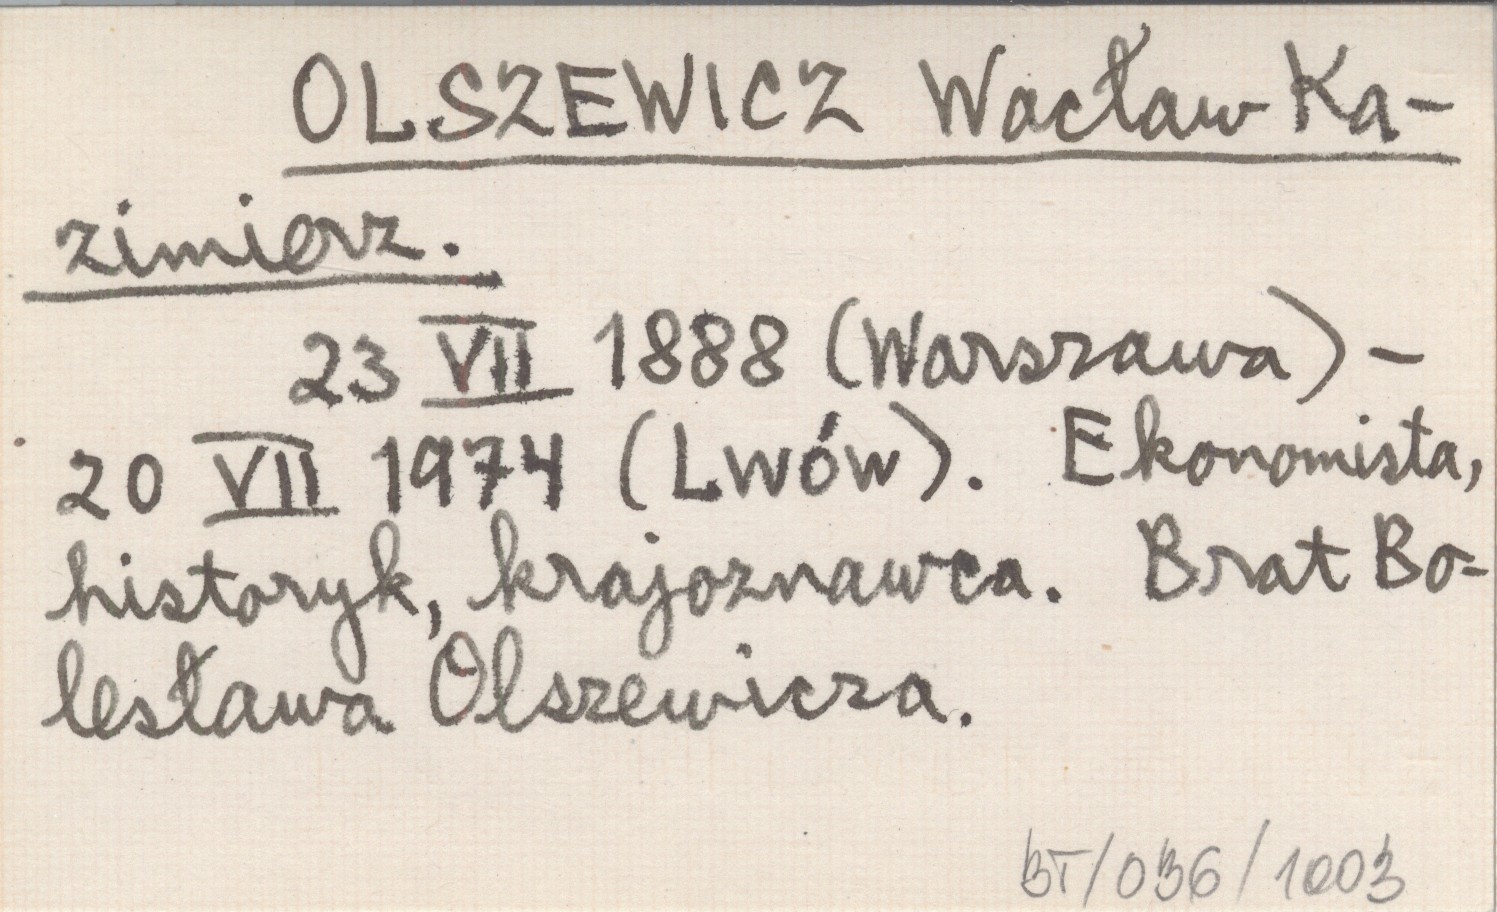 OLSZEWICZ Wacław Ka-
zimierz.
23 VII 1888 (Warszawa) -
20 VII 1974 (Lwów). Ekonomista,
historyk, krajoznawca. Brat Bo-
lesława Olszewicza.
BT/036/1003